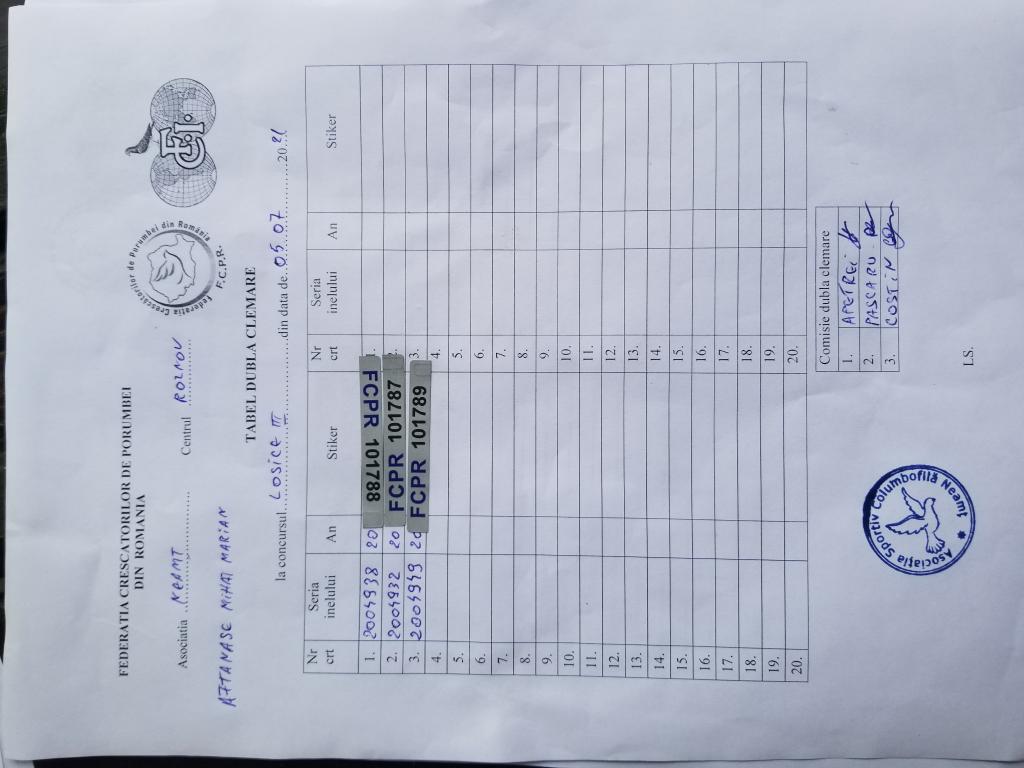 FEDERATIA CRESCATORILOR DE PORUMBEI
DIN ROMANIA
Federatia Crescătorilor de Porumbei din România
F.C.P.R.
FCI
Asociatia ..NEAMT.......... Centrul ..ROZNOV.......
MIHAI MARIAN
TABEL DUBLA CLEMARE
la concursul...LOSICE III..........din data de..05.07..........2021
Nr crt Seria inelului An Stiker Nr crt Seria inelului An Stiker
1. 2004938 20 FCPR 101788 1.
2. 2004932 20 FCPR 101787 2.
3. 2004949 20 FCPR 101789 3.
4. 4.
5. 5.
6. 6.
7. 7.
8. 8.
9. 9.
10. 10.
11. 11.
12. 12.
13. 13.
14. 14.
15. 15.
16. 16.
17. 17.
18. 18.
19. 19.
20. 20.
Comisie dubla clemare
1. APETREI
2. PASCARU
3. COSTIN
Asociația Sportiv Columbofilă Neamț
LS.